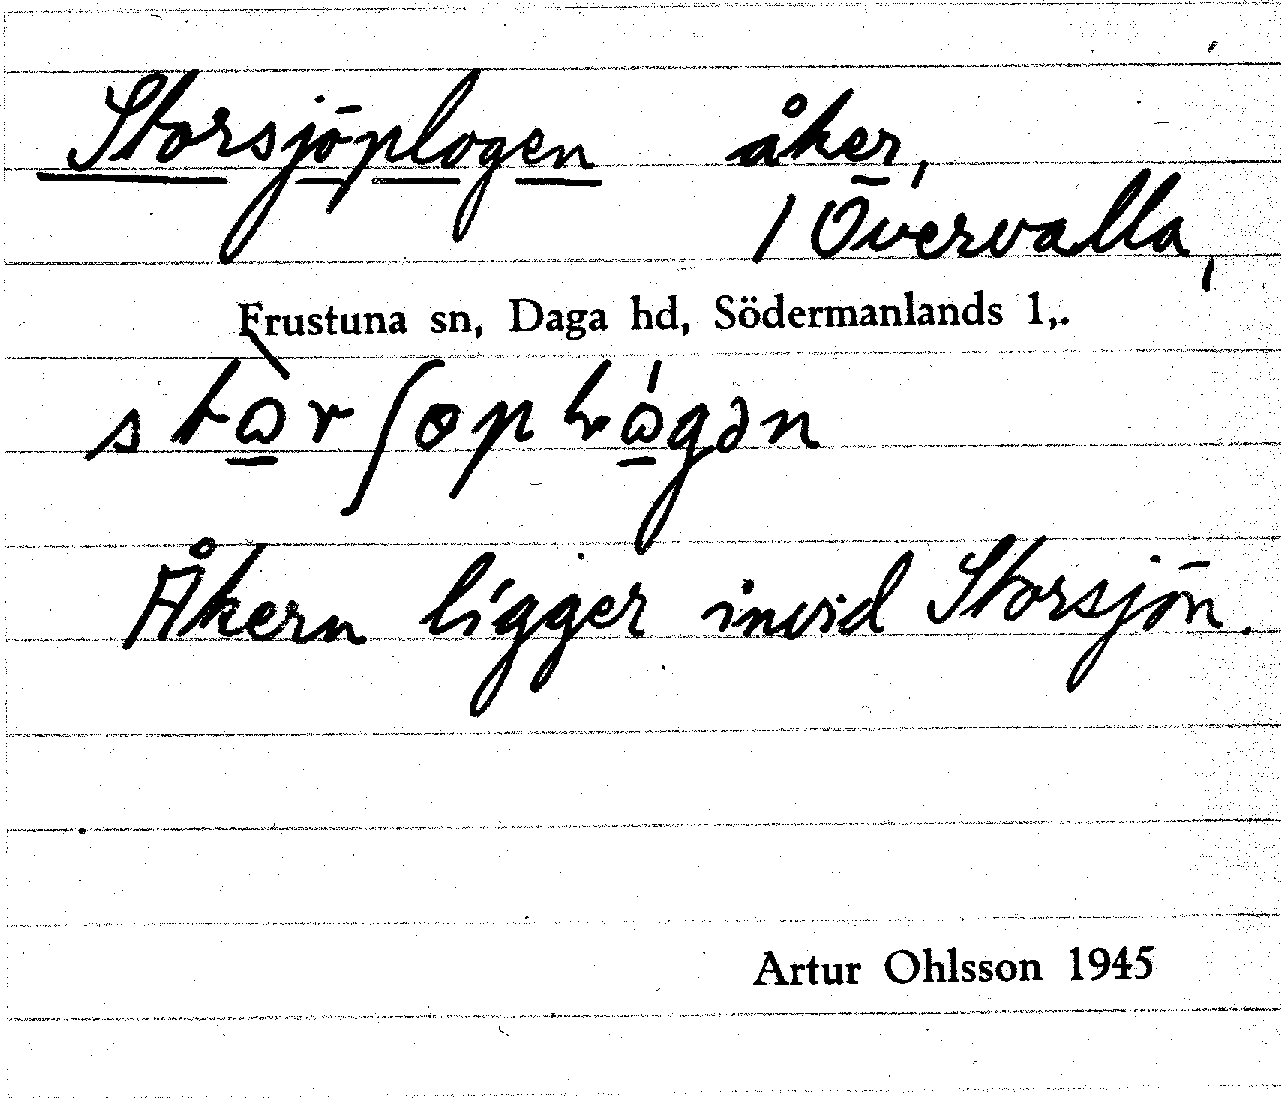 Storsjöplogen åker,
1 Övervalla,
Frustuna sn, Daga hd, Södermanlands l,.
Åkern ligger invid Storsjön.
Artur Ohlsson 1945